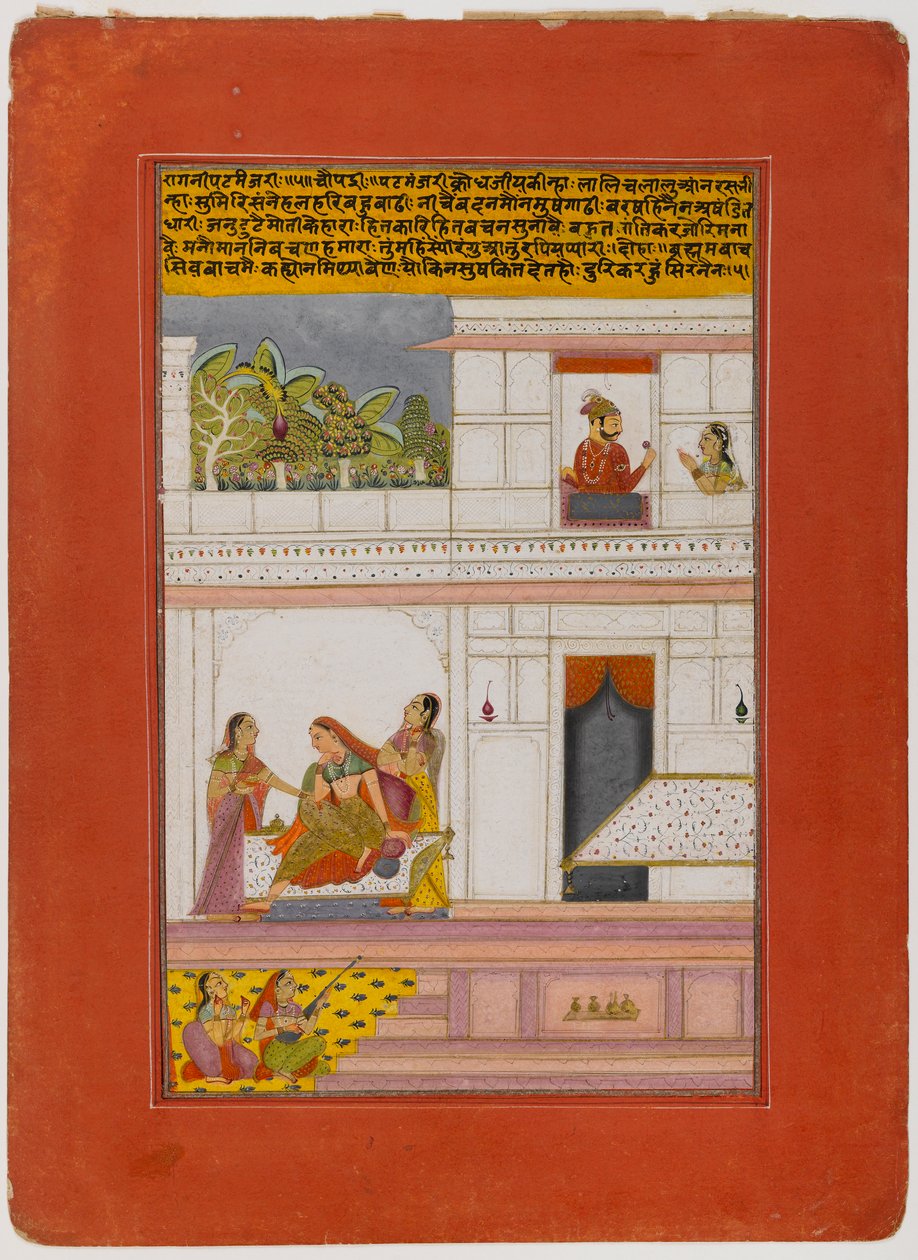 रागनी पटमंजरीः॥५॥ चौपई॥ पटमंजरी क्रोध जीय कीन्हाः लालि च लालु आंन रस ली
न्हाः सुमिरि सनेह नहरि बहु बाढीः नीचैं बदन मौन मुष गाढीः बरषहि नैन अषंडित
धारीः जनु टुटै मोती के हाराः हितकारि हित बचन सुनावैः बहुत गति कर जोरि मना
वैः मनौ मांननि बचण हमाराः तुंमहिं स्पौरंगु आतुर पिय प्याराः॥ दोहाः॥ ब्रह्म म बाच
सिव बाच मैः कह्यौ न मिथ्या बैणः यौ किन सुष कित देत हौः दुरि करहुं सिर नैनः।५।